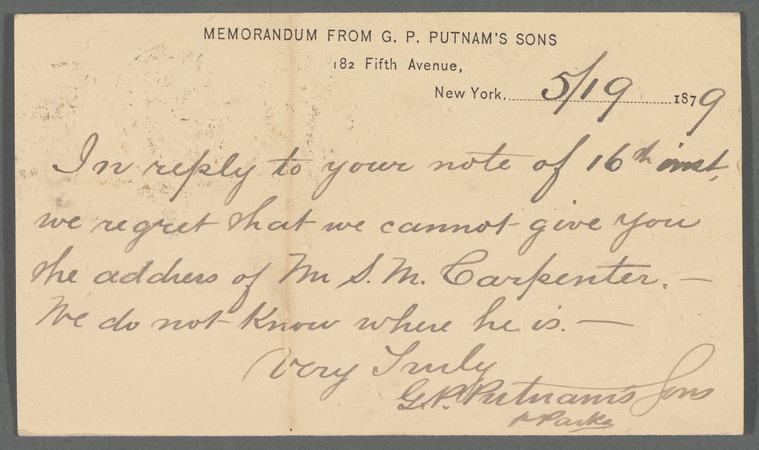 MEMORANDUM FROM G. P. PUTNAM'S SONS
182 Fifth Avenue,
New York, 5/19 1879
In reply to your note of 16th inst,
we regret that we cannot give you
the address of Mr S. M. Carpenter. —
We do not know where he is. —
Very Truly
G. P. Putnam's Sons
Parks